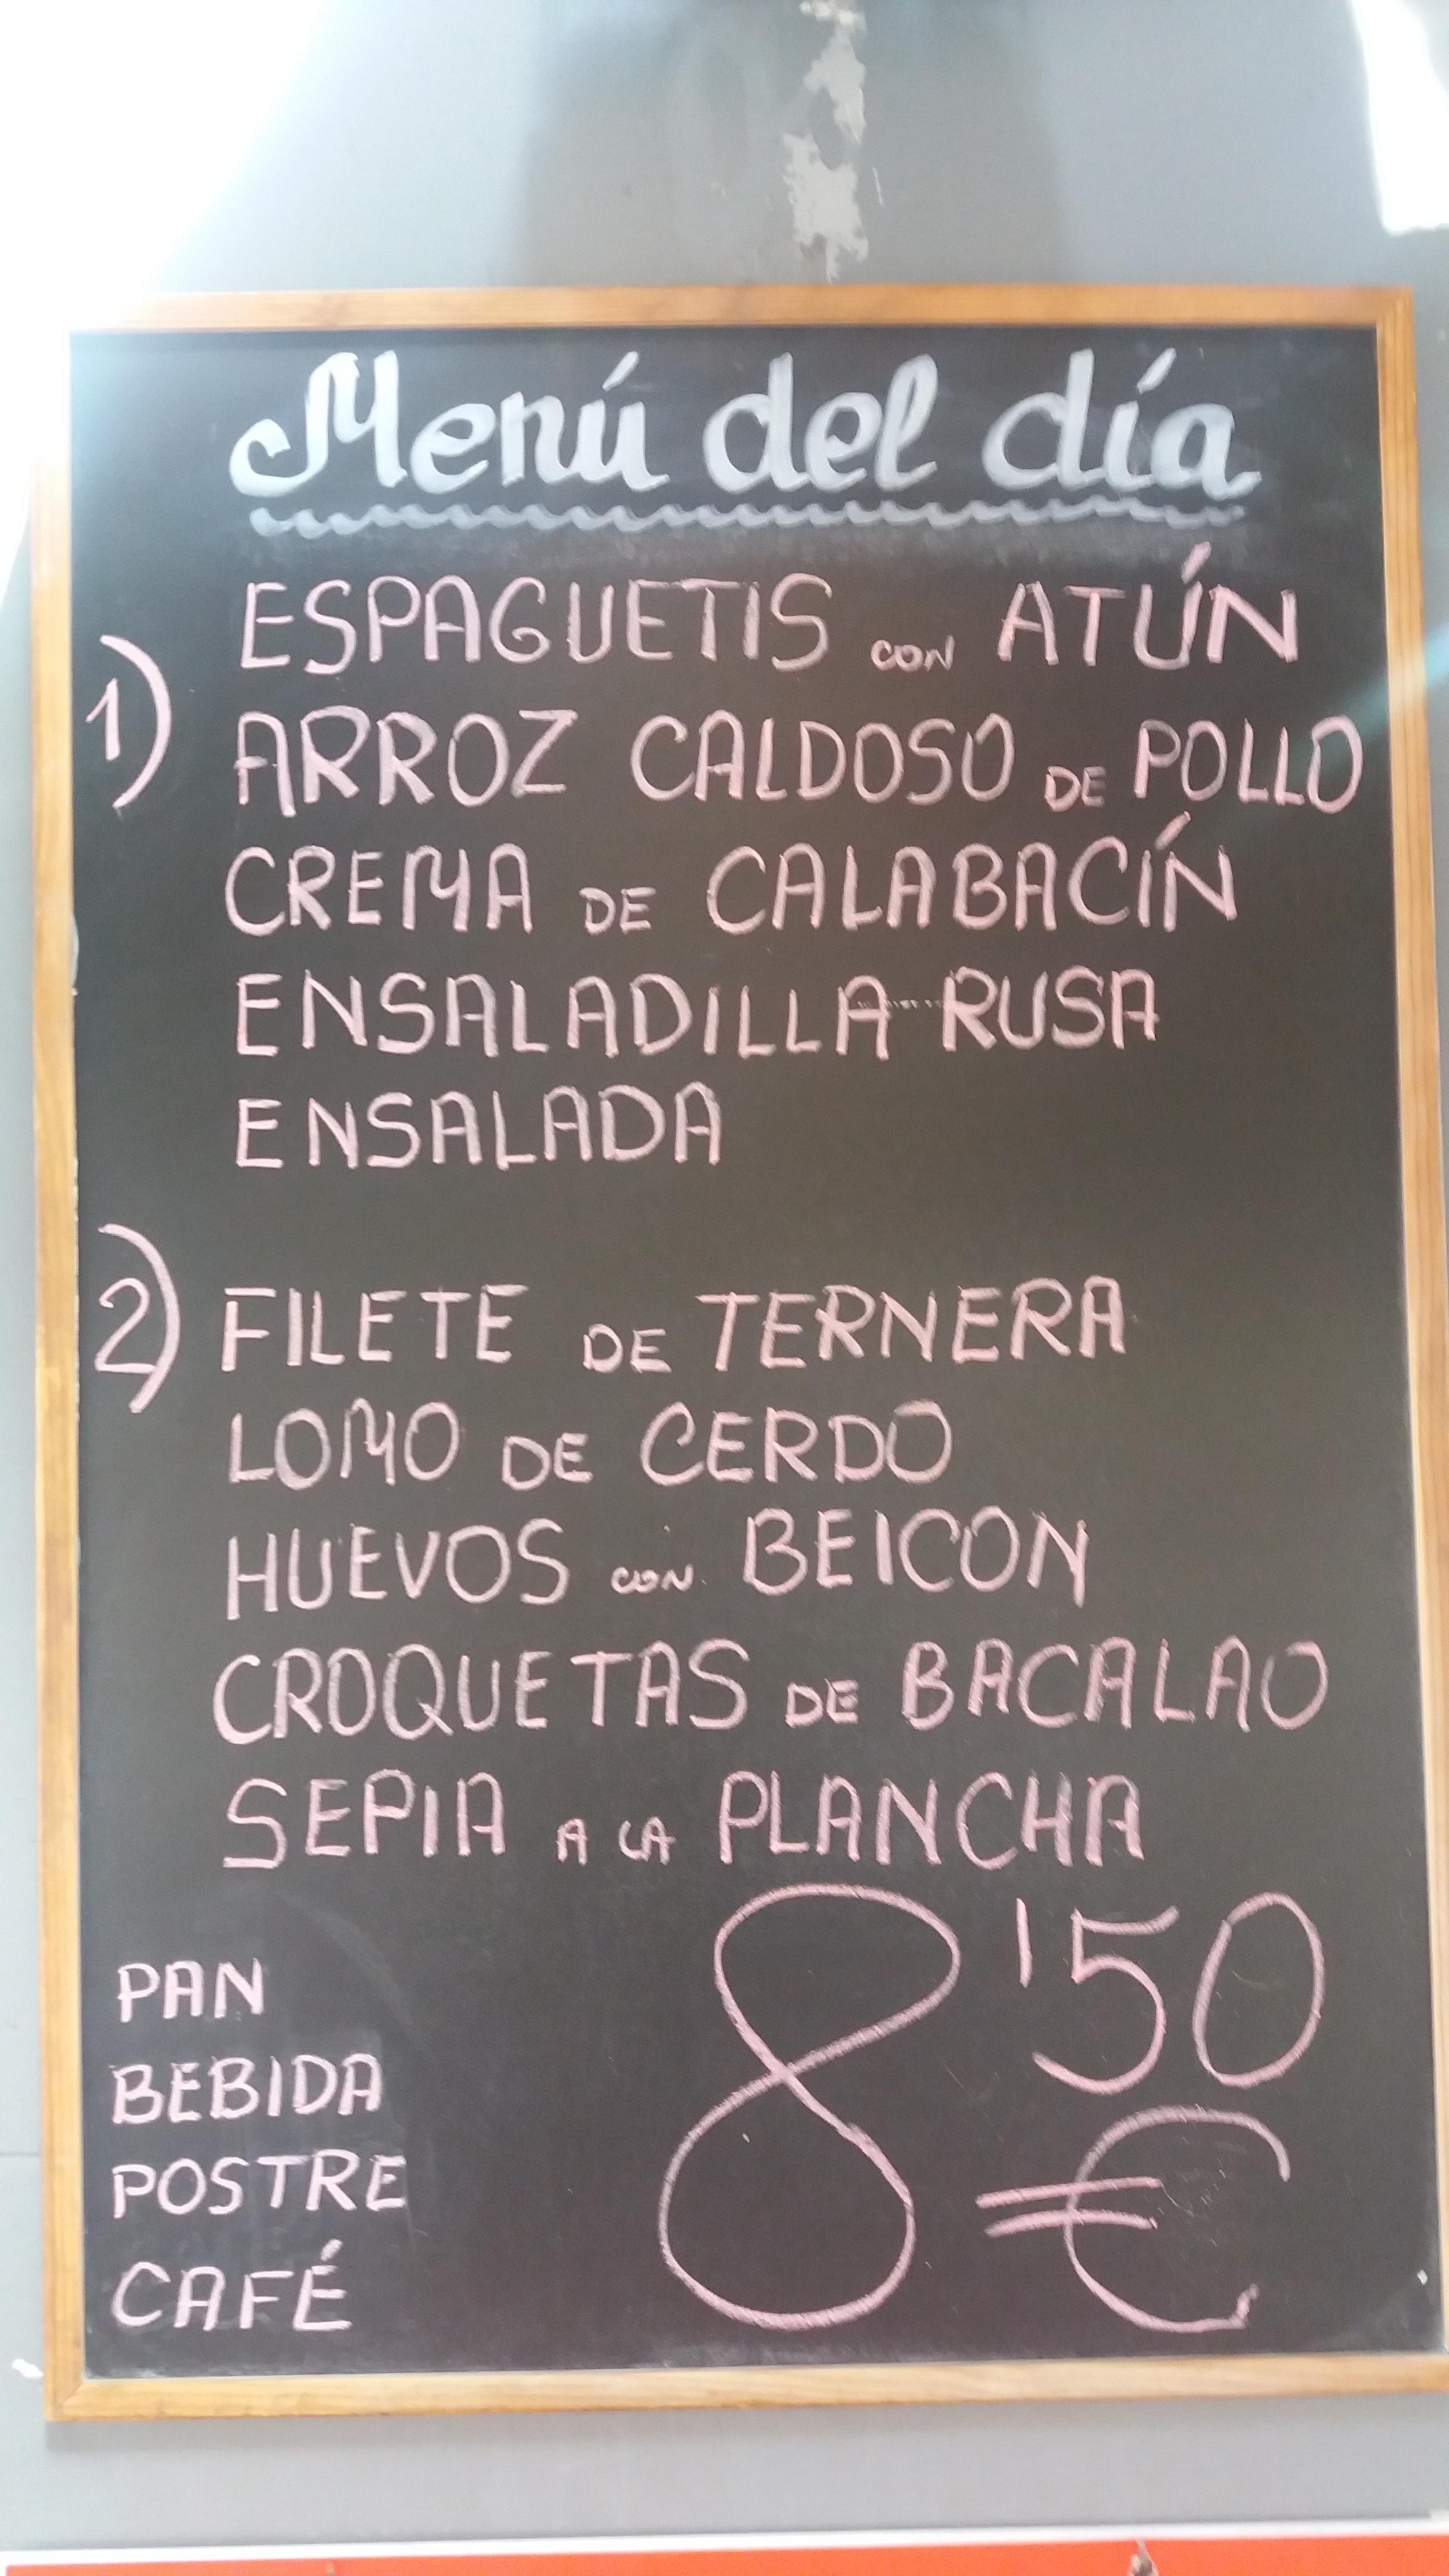 Menú del día
1) ESPAGUETIS CON ATÚN
ARROZ CALDOSO DE POLLO
CREMA DE CALABACÍN
ENSALADILLA RUSA
ENSALADA
2) FILETE DE TERNERA
LOMO DE CERDO
HUEVOS CON BEICON
CROQUETAS DE BACALAO
SEPIA A LA PLANCHA
PAN
BEBIDA
POSTRE
CAFÉ
8'50 €